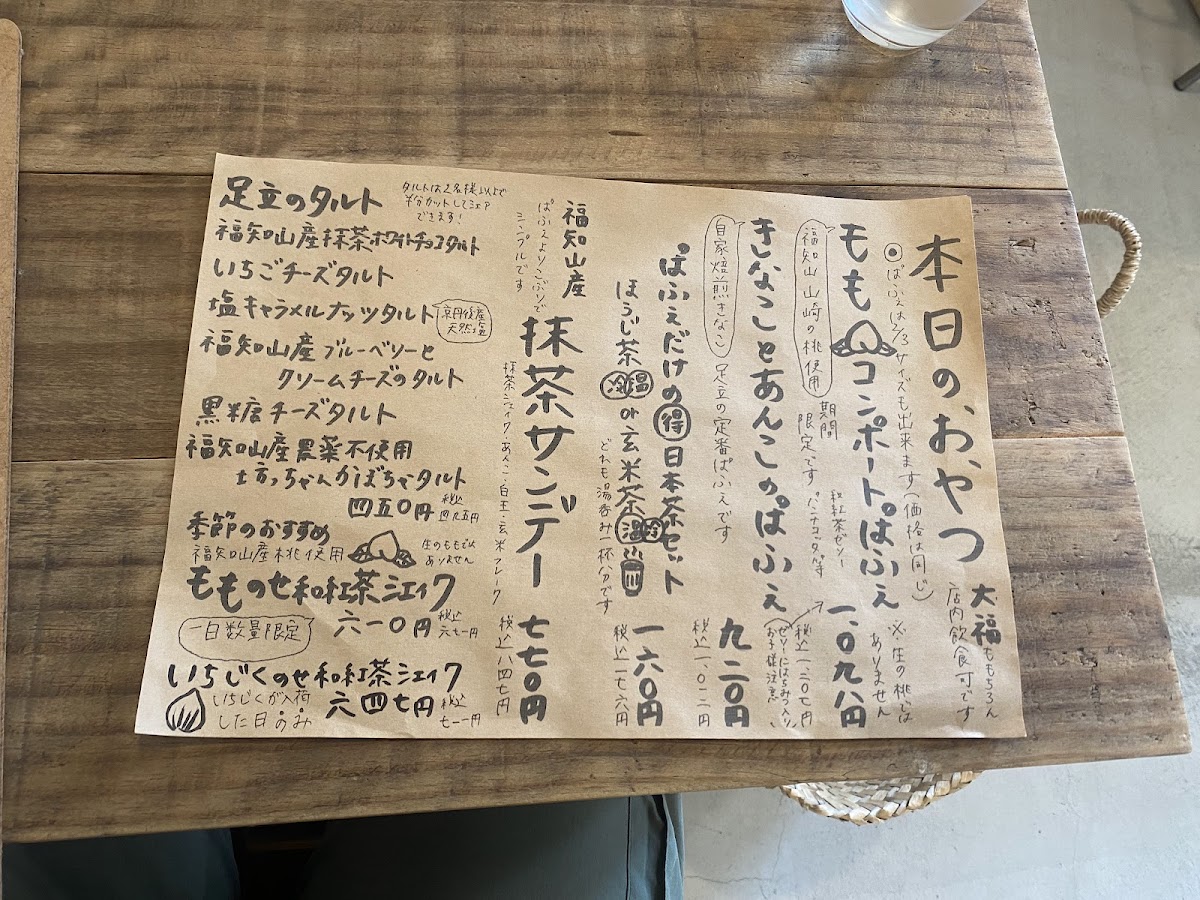 本日のおやつ
大福ももちろん
店内飲食可です
◉ぱふぇは2/3サイズも出来ます(価格は同じ)
※・生の桃では
ありません
ももコンポートぱふぇ
一、〇九八円
税込一、二〇七円
福知山 山崎の桃使用
期間
限定です
和紅茶ゼリー
パンナコッタ等
(ゼリーにはちみつ入り
お子様注意)
きなことあんこのぱふぇ
九二〇円
税込一、〇一二円
自家焙煎きなこ
足立の定番ぱふぇです
ぱふぇだけの得日本茶セット
一六〇円
税込一七六円
ほうじ茶冷温or玄米茶温冷
どれも湯呑み一杯分です
福知山産
抹茶サンデー
七七〇円
税込八四七円
ぱふぇよりこぶりで
シンプルです
抹茶ジェイク・あんこ・白玉・玄米フレーク
足立のタルト
タルトは2名様以上で
半分カットしてシェア
できます!
福知山産抹茶ホワイトチョコタルト
いちごチーズタルト
塩キャラメルナッツタルト
京丹後産
天然塩
福知山産ブルーベリーと
クリームチーズのタルト
黒糖チーズタルト
福知山産農薬不使用
坊っちゃんかぼちゃタルト
四五〇円
税込
四九五円
季節のおすすめ
福知山産桃使用
生のももでは
ありません
もものせ和紅茶シェイク
一日数量限定
六一〇円
税込
六七一円
いちじくのせ和紅茶シェイク
いちじくが入荷
した日のみ
六四七円
税込
七一一円